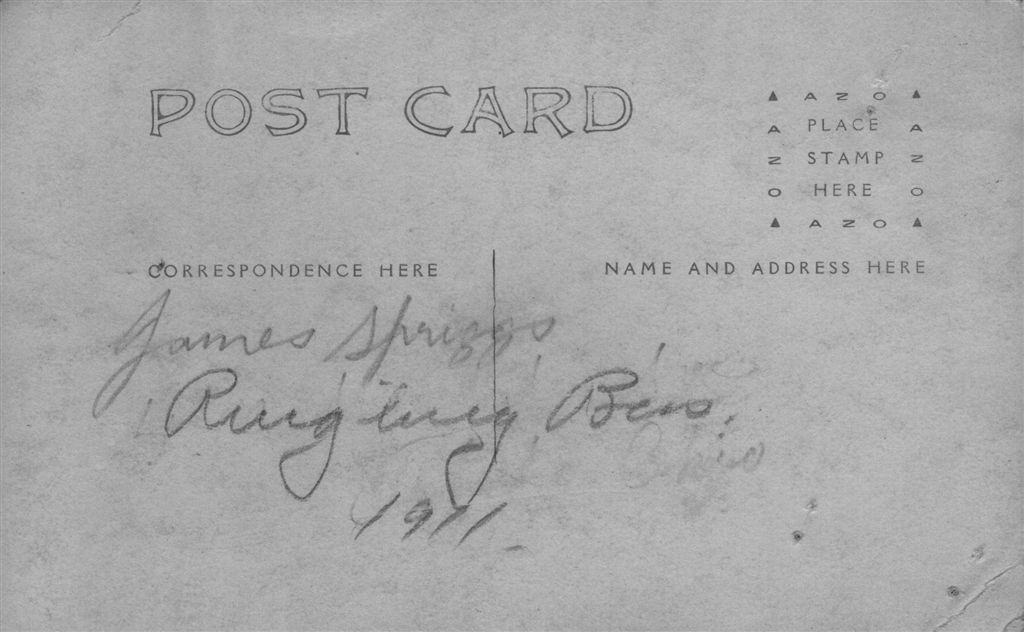 POST CARD
▲ AZO ▲
A PLACE A
Z STAMP Z
O HERE O
▲ AZO ▲
CORRESPONDENCE HERE
NAME AND ADDRESS HERE
James Spriggs
Ringling Bros.
1911